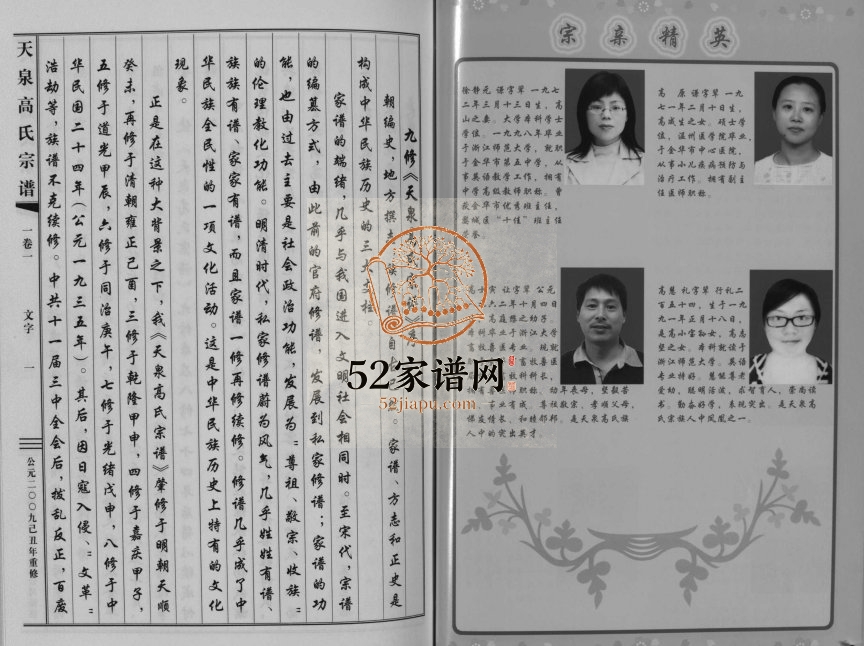 宗亲精英
徐静元 谦字辈 一九七
二年三月十三日生,高
山之妻。大学本科学士
学位。一九九八年毕业
于浙江师范大学,就职
于金华市第五中学,从
事英语教学工作。拥有
中学高级教师职称。曾
获金华市优秀班主任、
婺城区“十佳”班主任
荣誉。
高 原 谦字辈 一九
七一年二月十日生,
高成生之女。硕士学
位,温州医学院毕业,
于金华市中心医院,
从事小儿疾病预防与
治疗工作。拥有副主
任医师职称。
高慧 礼字辈 行礼二
百五十四,生于一九
九一年正月十八日,
是高小富孙女,高志
坚之女。本科就读于
浙江师范大学。英语
专业特好。慧能尊老
爱幼,聪明活泼,求智育人,崇尚读
书。勤奋好学,表现突出。是天泉高
氏宗族人中凤凰之一。
年表母,坚毅苦
孝顺父母,
是天泉高氏族
人中的突出英才。
九修《天泉高氏宗谱》序
家谱、方志和正史是
构成中华民族历史的三大支柱。
家谱的端绪,几乎与我国进入文明社会相同时。至宋代,宗谱
的编纂方式,由此前的官府修谱,发展到私家修谱;家谱的功
能,也由过去主要是社会政治功能,发展为“尊祖、敬宗、收族”
的伦理教化功能。明清时代,私家修谱蔚为风气,几乎姓姓有谱、
族族有谱、家家有谱,而且家谱一修再修续修。修谱几乎成了中
华民族全民性的一项文化活动。这是中华民族历史上特有的文化
现象。
正是在这种大背景之下,我《天泉高氏宗谱》肇修于明朝天顺
癸未,再修于清朝雍正己酉,三修于乾隆甲申,四修于嘉庆甲子,
五修于道光甲辰,六修于同治庚午,七修于光绪戊申,八修于中
华民国二十四年(公元一九三五年)。其后,因日寇入侵、“文革”
浩劫等,族谱不克续修。中共十一届三中全会后,拨乱反正,百废
天泉高氏宗谱
卷一
文字
一
公元二〇〇九己丑年重修
52家谱网
52jiapu.com